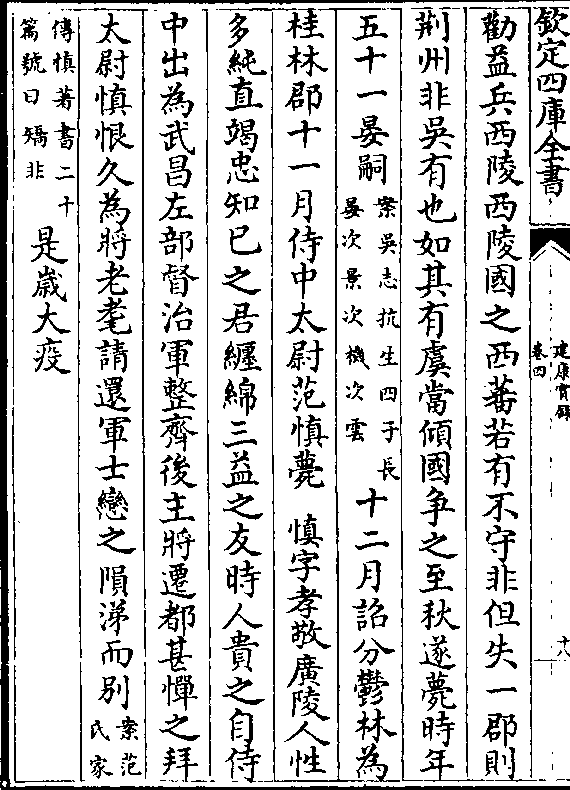 欽定四庫全書
建康實錄
卷四
十八
勸益兵西陵西陵國之西蕃若有不守非但失一郡則
荆州非吳有也如其有虞當傾國争之至秋遂薨時年
五十一晏嗣
案吳志抗生四子長
晏次景次機次雲
十二月詔分鬱林為
桂林郡十一月侍中太尉范慎薨 慎字孝敬廣陵人性
多純直竭忠知已之君纒綿三益之友時人貴之自侍
中出為武昌左部督治軍整齊後主將遷都甚憚之拜
太尉慎恨久為將老耄請還軍士戀之隕涕而别
案范
氏家
傳慎著書二十
篇號曰矯非
是歲大疫